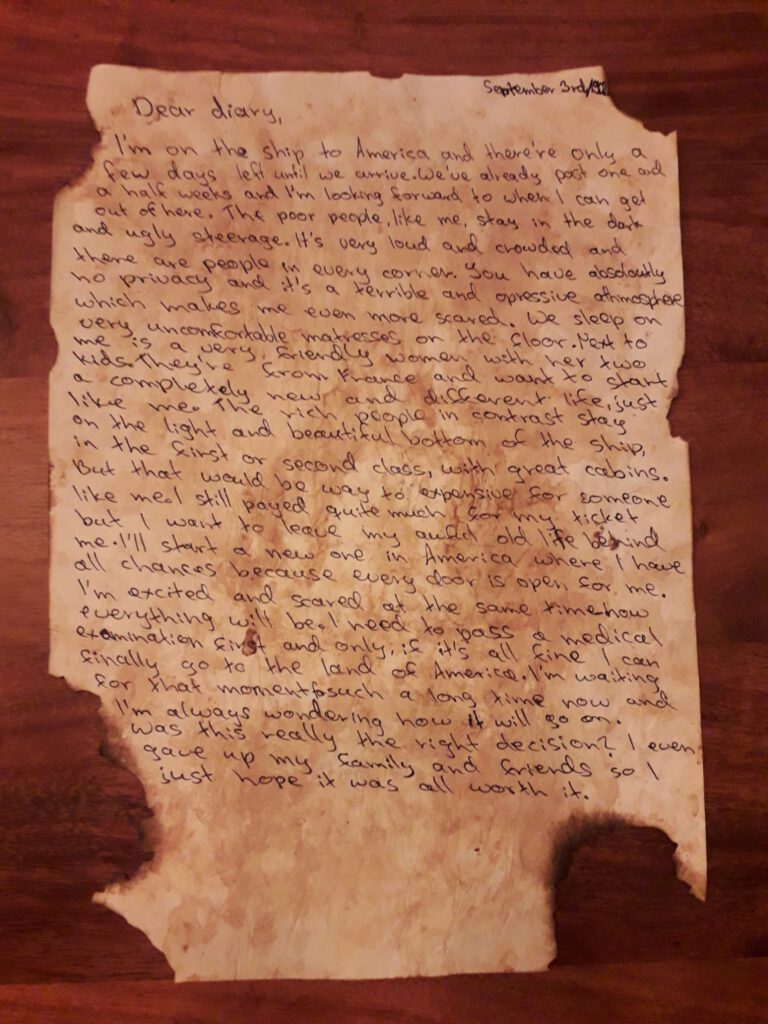 September 3rd,
Dear diary,
I'm on the ship to America and there're only a
few days left until we arrive. We've already past one and
a half weeks and I'm looking forward to when I can get
out of here. The poor people, like me, stay in the dark
and ugly steerage. It's very loud and crowded and
there are people in every corner. You have absoloutly
no privacy and it's a terrible and opressive athmosphere
which makes me even more scared. We sleep on
very uncomfortable matresses on the floor. Next to
me is a very friendly women with her two
kids. They're from France and want to start
a completely new and different life, just
like me. The rich people in contrast stay
on the light and beautiful bottom of the ship,
in the first or second class, with great cabins.
But that would be way to expensive for someone
like me. I still payed quite much for my ticket
but I want to leave my awful old life behind
me. I'll start a new one in America where I have
all chances because every door is open for me.
I'm excited and scared at the same time how
everything will be. I need to pass a medical
examination first and only, if it's all fine I can
finally go to the land of America. I'm waiting
for that moment such a long time now and
I'm always wondering how it will go on.
Was this really the right decision? I even
gave up my family and friends so I
just hope it was all worth it.